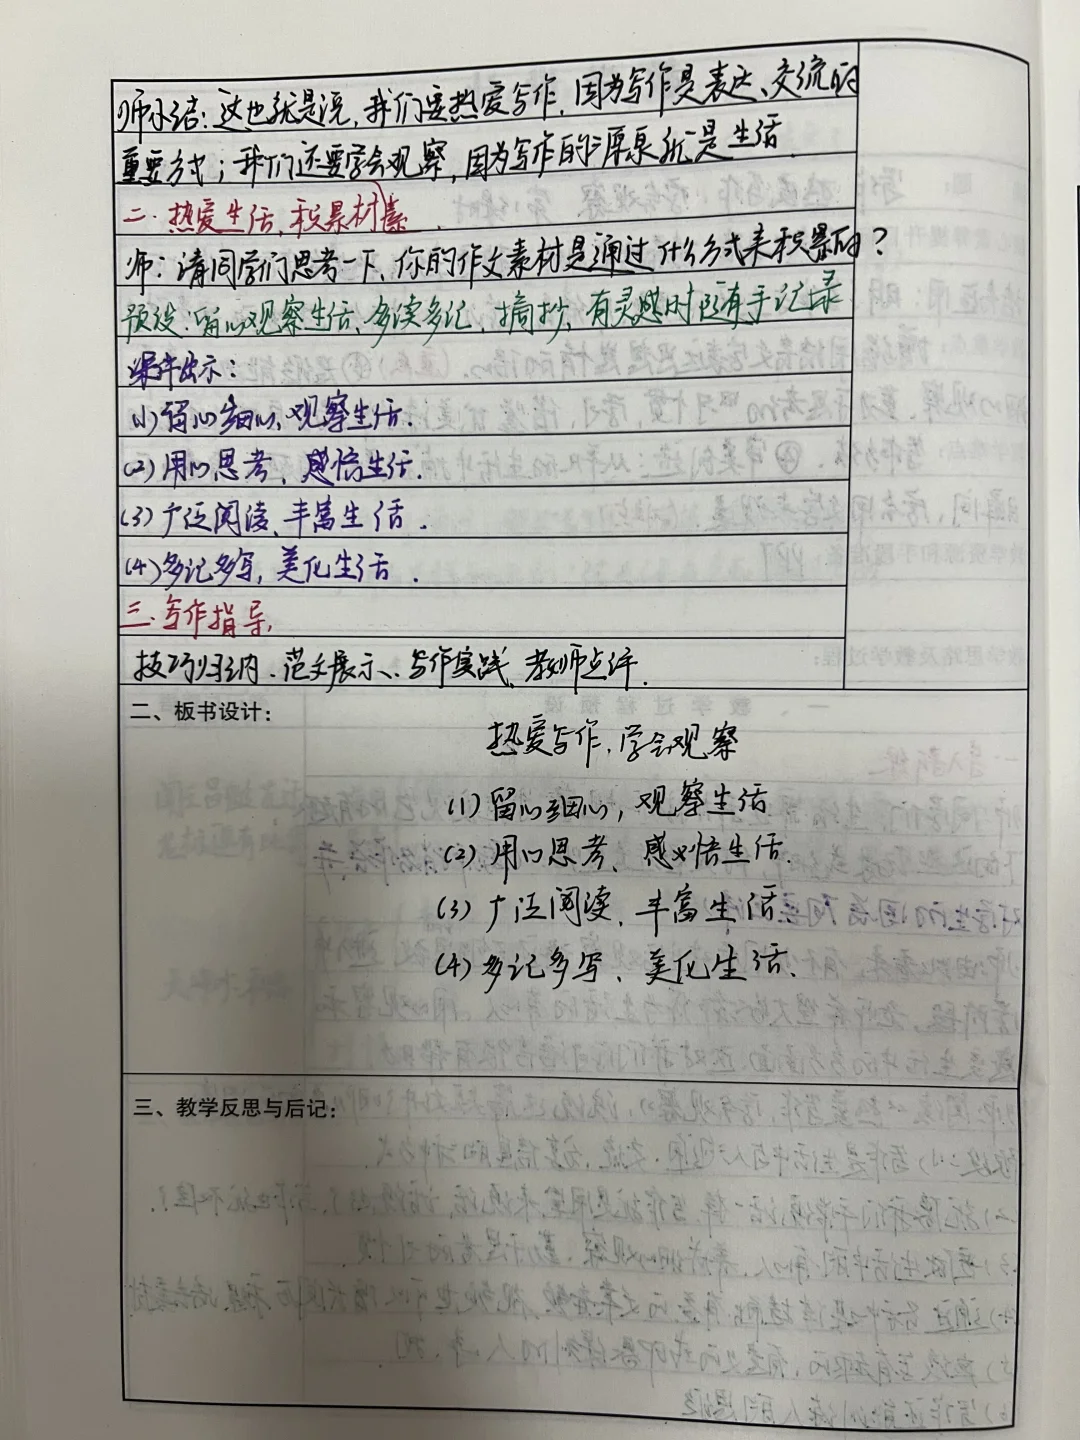 师小结：这也就是说，我们要热爱写作，因为写作是表达、交流的
重要方式；我们还要学会观察，因为写作的源泉就是生活.
二.热爱生活，积累材素.
师：请同学们思考一下，你的作文素材是通过什么方式来积累的？
预设：留心观察生活、多读多记、摘抄、有灵感时随手记录
课件出示：
(1)留心细心，观察生活.
(2)用心思考、感悟生活.
(3)广泛阅读、丰富生活.
(4)多记多写，美化生活.
三.写作指导，
技巧归纳、范文展示、写作实践、教师点评.
二、板书设计：
热爱写作，学会观察
(1)留心细心，观察生活
(2)用心思考、感悟生活.
(3)广泛阅读、丰富生活.
(4)多记多写、美化生活.
三、教学反思与后记：